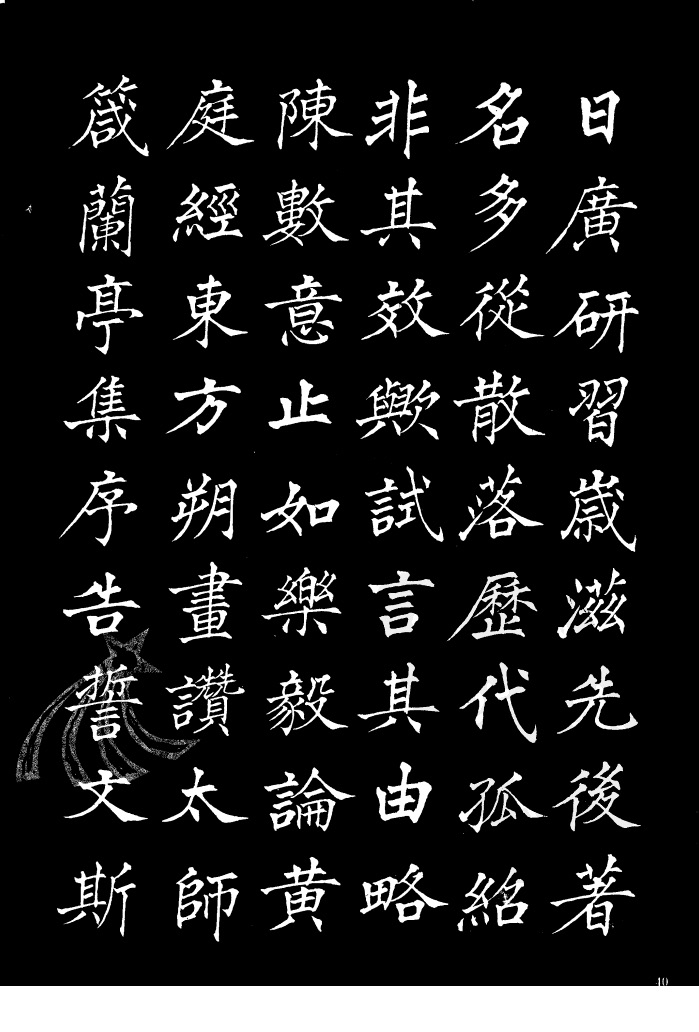 日廣研習歲滋先後著
名多從散落歷代孤紹
非其效歟試言其由略
陳數意止如樂毅論黄
庭經東方朔畫讚太師
箴蘭亭集序告誓文斯
40